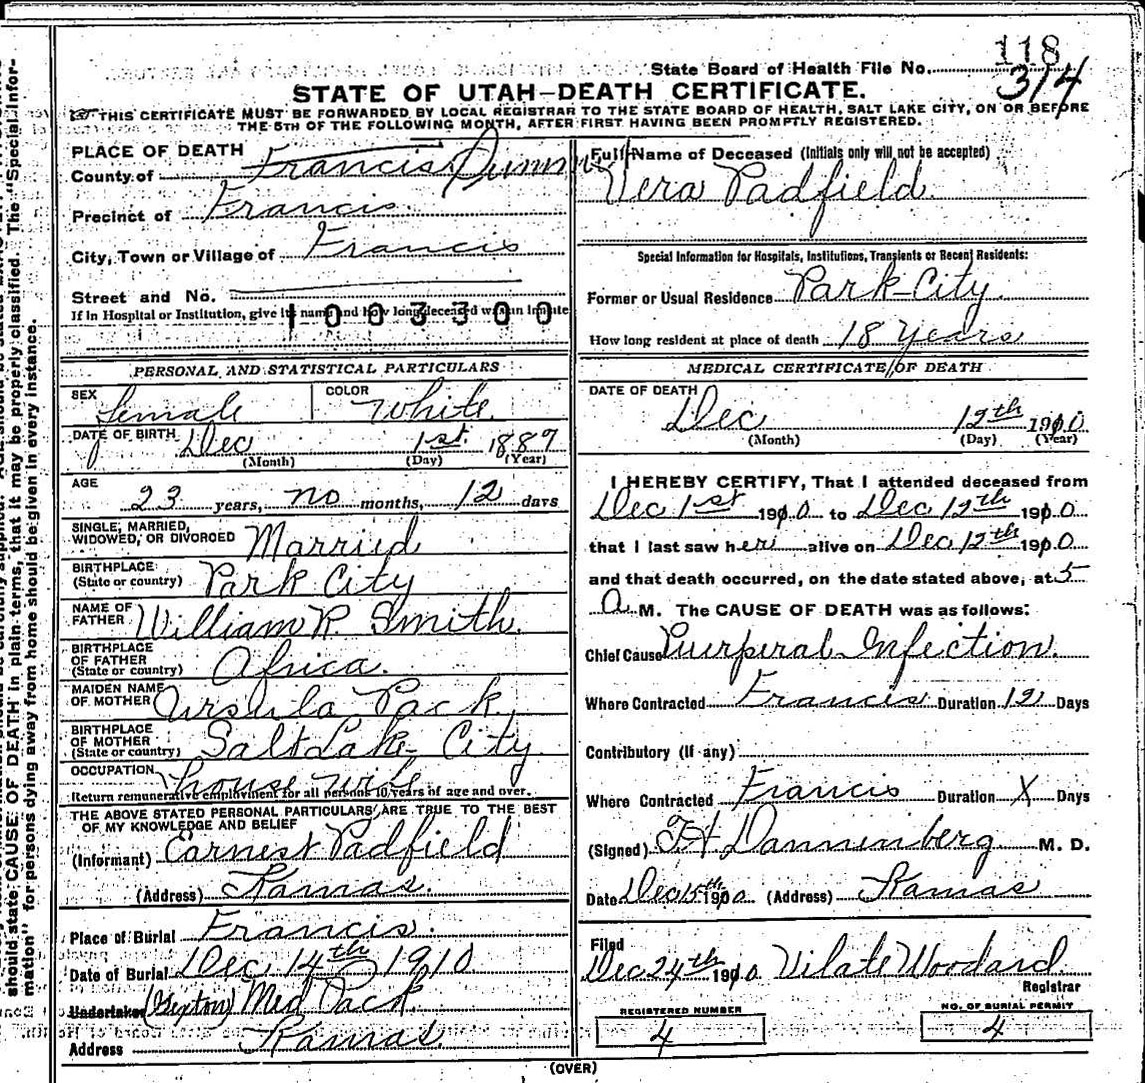 118
State Board of Health File No. 314
STATE OF UTAH—DEATH CERTIFICATE.
THIS CERTIFICATE MUST BE FORWARDED BY LOCAL REGISTRAR TO THE STATE BOARD OF HEALTH, SALT LAKE CITY, ON OR BEFORE
THE 5TH OF THE FOLLOWING MONTH, AFTER FIRST HAVING BEEN PROMPTLY REGISTERED.
PLACE OF DEATH
County of Francis
Precinct of Francis
City, Town or Village of Francis
Street and No.
If in Hospital or Institution, give its name and how long deceased was an inmate
1003300
PERSONAL AND STATISTICAL PARTICULARS
SEX female COLOR White
DATE OF BIRTH Dec 1st 1887
(Month) (Day) (Year)
AGE 23 years, no months, 12 days
SINGLE, MARRIED,
WIDOWED, OR DIVORCED Married
BIRTHPLACE
(State or country) Park City
NAME OF
FATHER William R. Smith.
BIRTHPLACE
OF FATHER
(State or country) Africa.
MAIDEN NAME
OF MOTHER Ursula Pack
BIRTHPLACE
OF MOTHER
(State or country) Salt Lake City
OCCUPATION house wife
Return remunerative employment for all persons 10 years of age and over.
THE ABOVE STATED PERSONAL PARTICULARS ARE TRUE TO THE BEST
OF MY KNOWLEDGE AND BELIEF
(Informant) Earnest Padfield
(Address) Kamas.
Place of Burial Francis.
Date of Burial Dec 14th 1910
Undertaker (Sexton) Med Pack
Address Kamas
Full Name of Deceased (Initials only will not be accepted)
Vera Padfield
Special Information for Hospitals, Institutions, Transients or Recent Residents:
Former or Usual Residence Park City
How long resident at place of death 18 Years
MEDICAL CERTIFICATE OF DEATH
DATE OF DEATH
Dec 12th 1910
(Month) (Day) (Year)
I HEREBY CERTIFY, That I attended deceased from
Dec 1st 1910 to Dec 12th 1910
that I last saw her alive on Dec 12th 1910
and that death occurred, on the date stated above, at 5
a M. The CAUSE OF DEATH was as follows:
Chief Cause Puerperal Infection.
Where Contracted Francis Duration 12 Days
Contributory (If any)
Where Contracted Francis Duration X Days
(Signed) F H Dannenberg M. D.
Date Dec 15th 1910 (Address) Kamas
Filed
Dec 24th 1910 Vilate Woodard
Registrar
REGISTERED NUMBER
4
NO. OF BURIAL PERMIT
4
(OVER)
should state CAUSE OF DEATH in plain terms, that it may be properly classified. The "Special Infor-
mation" for persons dying away from home should be given in every instance.